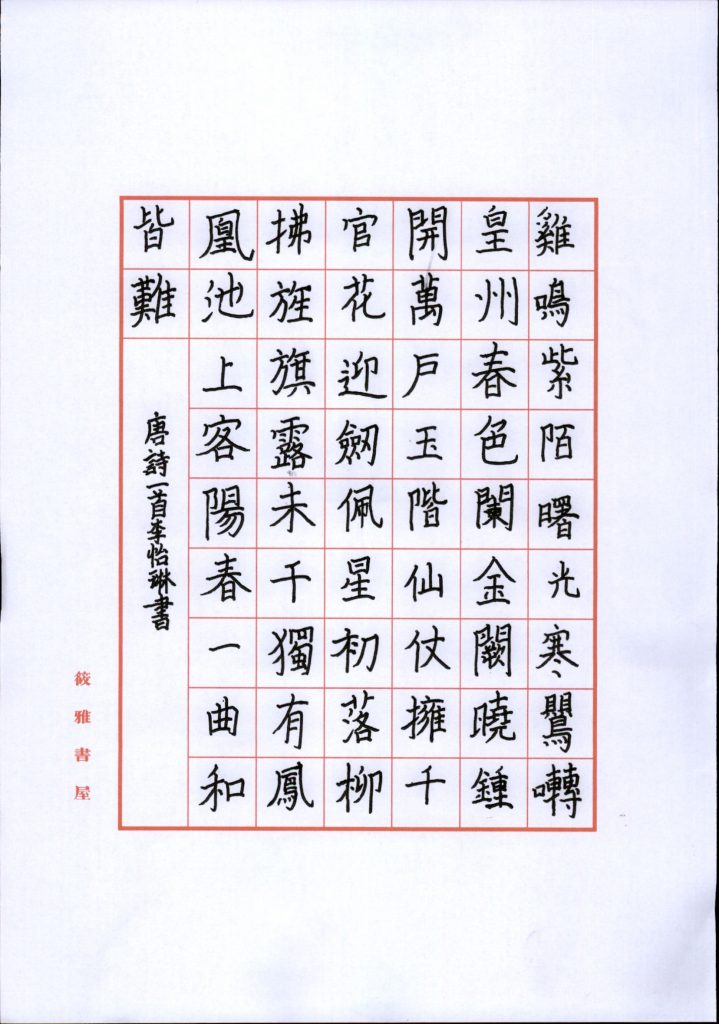 雞鳴紫陌曙光寒鶯囀
皇州春色闌金闕曉鍾
開萬戶玉階仙仗擁千
官花迎劒佩星初落柳
拂旌旗露未干獨有鳳
凰池上客陽春一曲和
皆難
唐詩一首李怡琳書
筱雅書屋